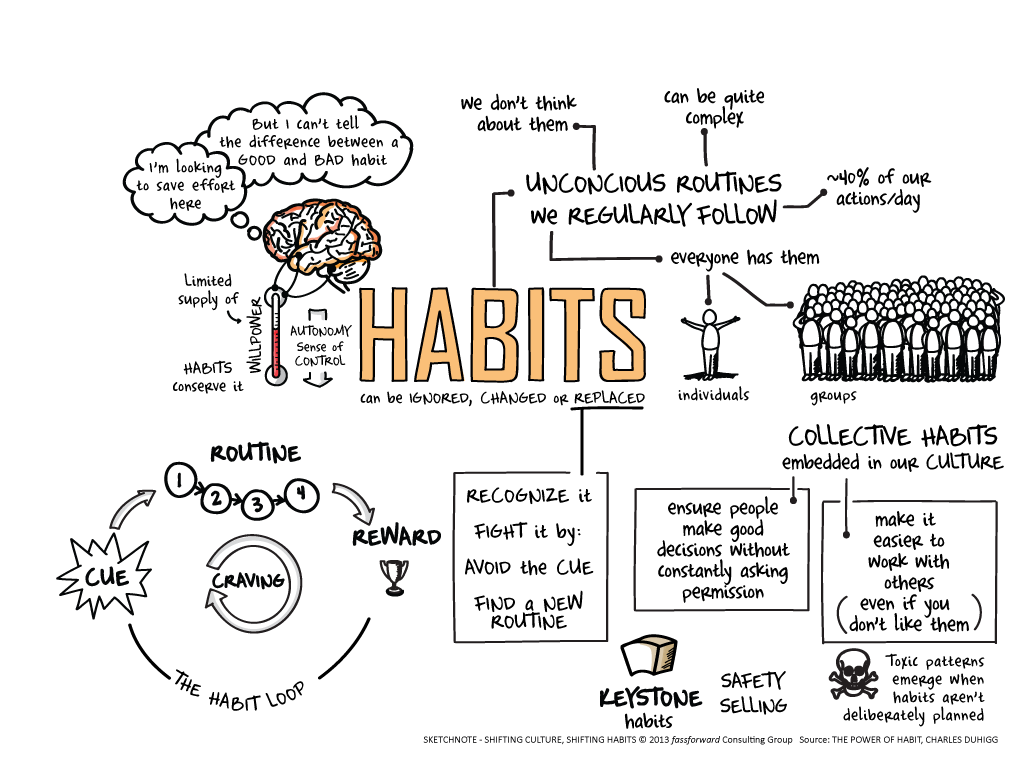 But I can't tell
the difference between a
GOOD and BAD habit
I'm looking
to save effort
here
Limited
supply of
WILLPOWER
HABITS
conserve it
AUTONOMY
Sense of
CONTROL
we don't think
about them
can be quite
complex
UNCONCIOUS ROUTINES
we REGULARLY FOLLOW
~40% of our
actions/day
everyone has them
individuals
groups
HABITS
can be IGNORED, CHANGED or REPLACED
ROUTINE
1
2
3
4
CUE
CRAVING
REWARD
THE HABIT LOOP
RECOGNIZE it
FIGHT it by:
AVOID the CUE
FIND a NEW
ROUTINE
COLLECTIVE HABITS
embedded in our CULTURE
ensure people
make good
decisions without
constantly asking
permission
make it
easier to
work with
others
(even if you
don't like them)
KEYSTONE
habits
SAFETY
SELLING
Toxic patterns
emerge when
habits aren't
deliberately planned
SKETCHNOTE - SHIFTING CULTURE, SHIFTING HABITS © 2013 fassforward Consulting Group Source: THE POWER OF HABIT, CHARLES DUHIGG